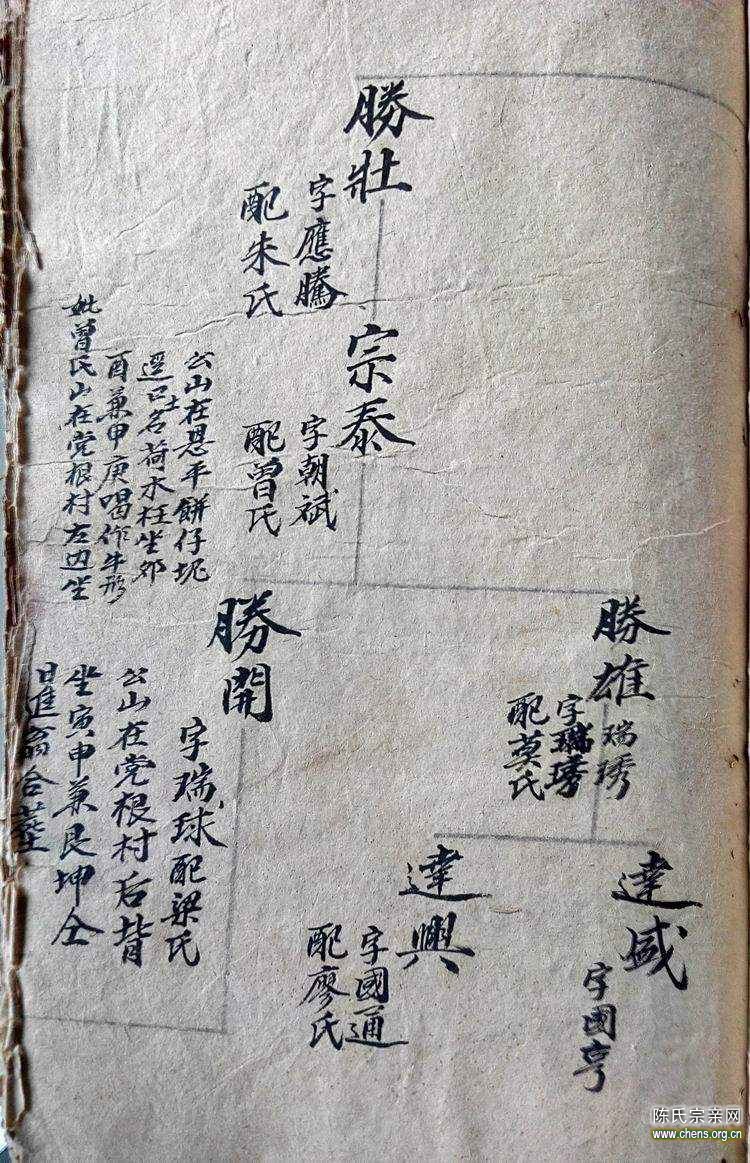 勝壯
字應騰
配朱氏
宗泰
字朝斌
配曾氏
公山在恩平餅仔坭
逕口土名荷木枉坐夘
酉兼甲庚喝作牛形
妣曾氏山在党根村左边坐
勝雄
瑞琇
字瑞琇
配莫氏
勝開
字瑞球配梁氏
公山在党根村后背
坐寅申兼艮坤仝
日進翕合塟
達盛
字國亨
達興
字國通
配廖氏
陈氏宗亲网
www.chens.org.cn